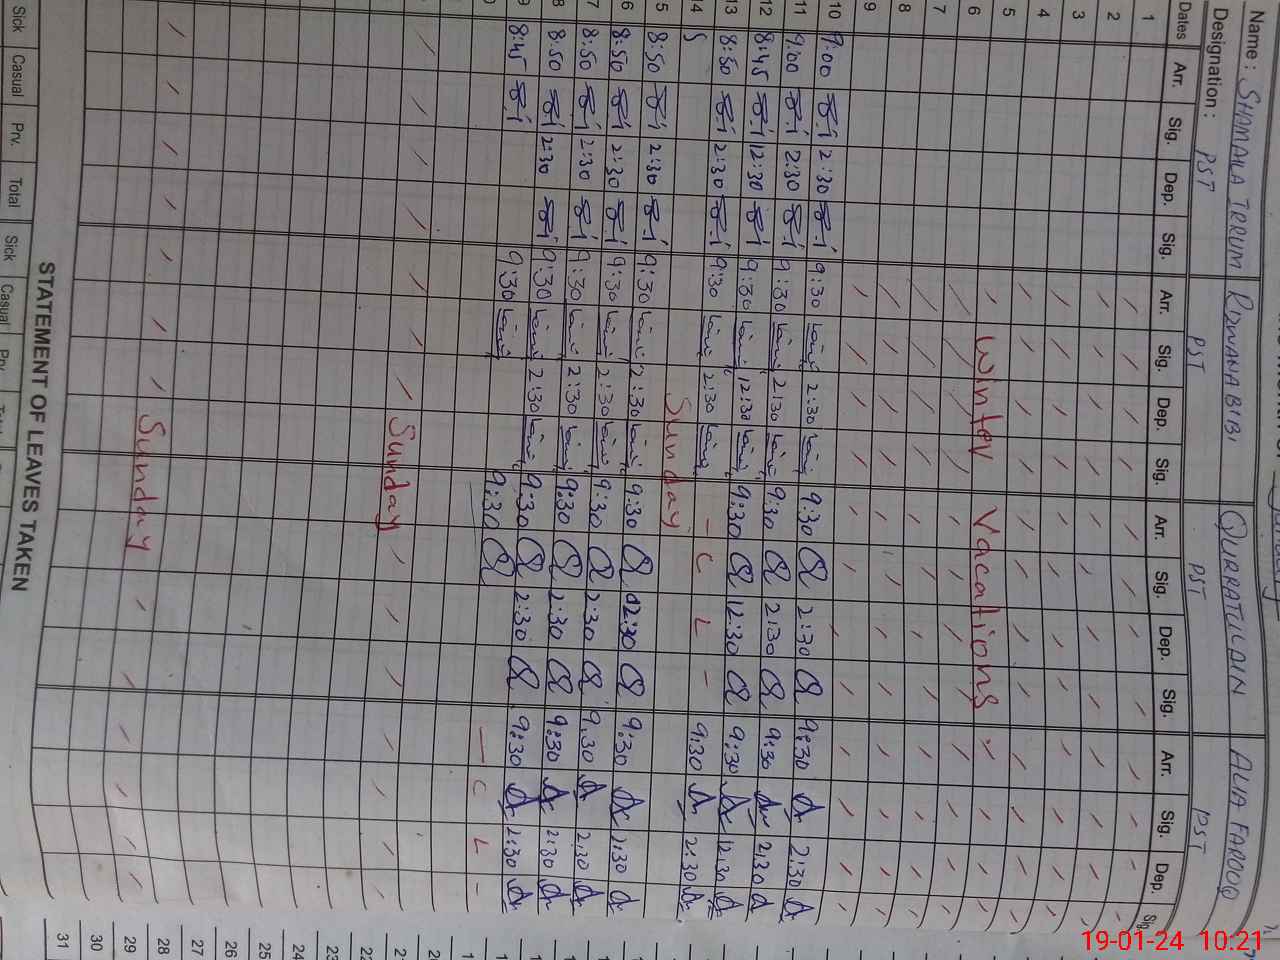 Name: SHAMAILA IRRUM RIZWANA BIBI QURRATULAIN ALIA FAROOQ
Designation: PST PST PST PST
Dates Arr. Sig. Dep. Sig. Arr. Sig. Dep. Sig. Arr. Sig. Dep. Sig. Arr. Sig. Dep. Sig.
1
2
3
4
5
6 Winter Vacations
7
8
9
10 9:00 2:30 9:30 2:30 9:30 2:30 9:30 2:30
11 9:00 2:30 9:30 2:30 9:30 2:30 9:30 2:30
12 8:45 12:30 9:30 12:30 9:30 12:30 9:30 12:30
13 8:50 2:30 9:30 2:30 - C L - 9:30 2:30
14 S Sunday
5 8:50 2:30 9:30 2:30 9:30 02:30 9:30 2:30
6 8:50 2:30 9:30 2:30 9:30 2:30 9.30 2.30
7 8:50 2:30 9:30 2:30 9:30 2:30 9:30 2:30
8 8:50 2:30 9:30 2:30 9:30 2:30 9:30 2:30
9 8:45 9:30 9:30 - C L -
Sunday 21
22
23
24
25
26
27
Sunday 28
29
30
31
STATEMENT OF LEAVES TAKEN
Sick Casual Prv. Total Sick Casual Prv.
19-01-24 10:21